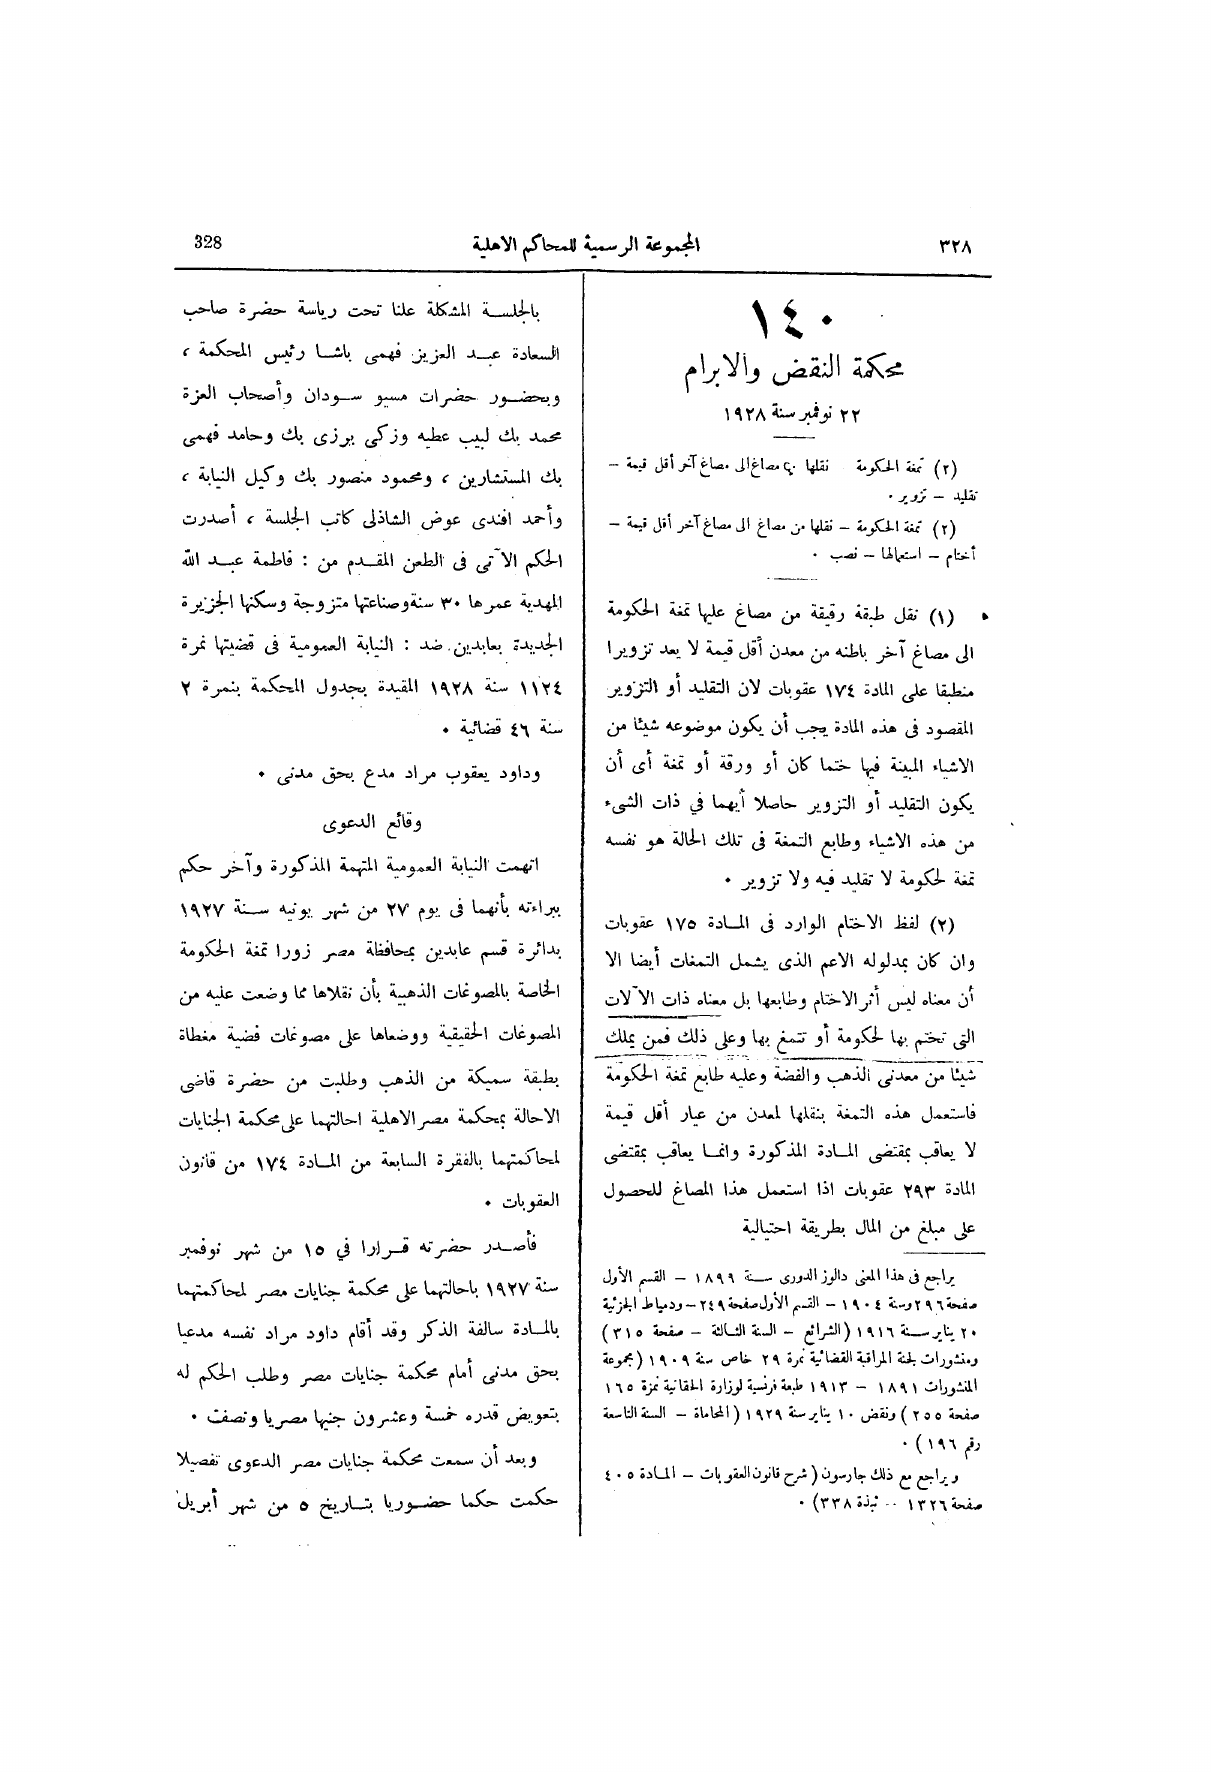 ٣٢٨
المجموعة الرسمية للمحاكم الاهلية
328
١٤٠
محكمة النقض والابرام
٢٢ نوفمبر سنة ١٩٢٨
(٢) تمغة الحكومة نقلها من مصاغ الى مصاغ آخر أقل قيمة —
تقليد — تزوير .
(٢) تمغة الحكومة — نقلها من مصاغ الى مصاغ آخر أقل قيمة —
أختام — استعمالها — نصب .
(١) نقل طبقة رقيقة من مصاغ عليها تمغة الحكومة
الى مصاغ آخر باطنه من معدن أقل قيمة لا يعد تزويرا
منطبقا على المادة ١٧٤ عقوبات لان التقليد أو التزوير
المقصود فى هذه المادة يجب أن يكون موضوعه شيئا من
الاشياء المبينة فيها ختما كان أو ورقة أو تمغة أى أن
يكون التقليد أو التزوير حاصلا أيهما في ذات الشىء
من هذه الاشياء وطابع التمغة فى تلك الحالة هو نفسه
تمغة لحكومة لا تقليد فيه ولا تزوير .
(٢) لفظ الاختام الوارد فى المادة ١٧٥ عقوبات
وان كان بمدلوله الاعم الذى يشمل التمغات أيضا الا
أن معناه ليس أثر الاختام وطابعها بل معناه ذات الآلات
التى تختم بها لحكومة أو تتمغ بها وعلى ذلك فمن يملك
شيئا من معدنى الذهب والفضة وعليه طابع تمغة الحكومة
فاستعمل هذه التمغة بنقلها لمعدن من عيار أقل قيمة
لا يعاقب بمقتضى المادة المذكورة وانما يعاقب بمقتضى
المادة ٢٩٣ عقوبات اذا استعمل هذا المصاغ للحصول
على مبلغ من المال بطريقة احتيالية
يراجع فى هذا المعنى دالوز الدورى سنة ١٨٩٩ — القسم الأول
صفحة ٢٩٦ وسنة ١٩٠٤ — القسم الأول صفحة ٢٤٩ — ودمياط الجزئية
٢٠ يناير سنة ١٩١٦ (الشرائع — السنة الثالثة — صفحة ٣١٥)
ومنشورات لجنة المراقبة القضائية نمرة ٢٩ خاص سنة ١٩٠٩ (مجموعة
المنشورات ١٨٩١ — ١٩١٣ طبعة فرنسية لوزارة الحقانية نمزة ١٦٥
صفحة ٢٥٥) ونقض ١٠ يناير سنة ١٩٢٩ (المحاماة — السنة التاسعة
رقم ١٩٦) .
ويراجع مع ذلك جارسون (شرح قانون العقوبات — المادة ٤٠٥
صفحة ١٣٢٦ — نبذة ٣٣٨) .
بالجلسة المشكلة علنا تحت رياسة حضرة صاحب
السعادة عبد العزيز فهمى باشا رئيس المحكمة ،
وبحضور حضرات مسيو سودان وأصحاب العزة
محمد بك لبيب عطيه وزكى برزى بك وحامد فهمى
بك المستشارين ، ومحمود منصور بك وكيل النيابة ،
وأحمد افندى عوض الشاذلى كاتب الجلسة ، أصدرت
الحكم الآتى فى الطعن المقدم من : فاطمة عبد الله
المهدية عمرها ٣٠ سنة وصناعتها متزوجة وسكنها الجزيرة
الجديدة بعابدين ضد : النيابة العمومية فى قضيتها نمرة
١١٢٤ سنة ١٩٢٨ المقيدة بجدول المحكمة بنمرة ٢
سنة ٤٦ قضائية .
وداود يعقوب مراد مدع بحق مدنى .
وقائع الدعوى
اتهمت النيابة العمومية المتهمة المذكورة وآخر حكم
ببراءته بأنهما فى يوم ٢٧ من شهر يونيه سنة ١٩٢٧
بدائرة قسم عابدين بمحافظة مصر زورا تمغة الحكومة
الخاصة بالمصوغات الذهبية بأن نقلاها مما وضعت عليه من
المصوغات الحقيقية ووضعاها على مصوغات فضية مغطاة
بطبقة سميكة من الذهب وطلبت من حضرة قاضى
الاحالة بمحكمة مصر الاهلية احالتهما على محكمة الجنايات
لمحاكمتهما بالفقرة السابعة من المادة ١٧٤ من قانون
العقوبات .
فأصدر حضرته قرارا في ١٥ من شهر نوفمبر
سنة ١٩٢٧ باحالتهما على محكمة جنايات مصر لمحاكمتهما
بالمادة سالفة الذكر وقد أقام داود مراد نفسه مدعيا
بحق مدنى أمام محكمة جنايات مصر وطلب الحكم له
بتعويض قدره خمسة وعشرون جنيها مصريا ونصف .
وبعد أن سمعت محكمة جنايات مصر الدعوى تفصيلا
حكمت حكما حضوريا بتاريخ ٥ من شهر أبريل